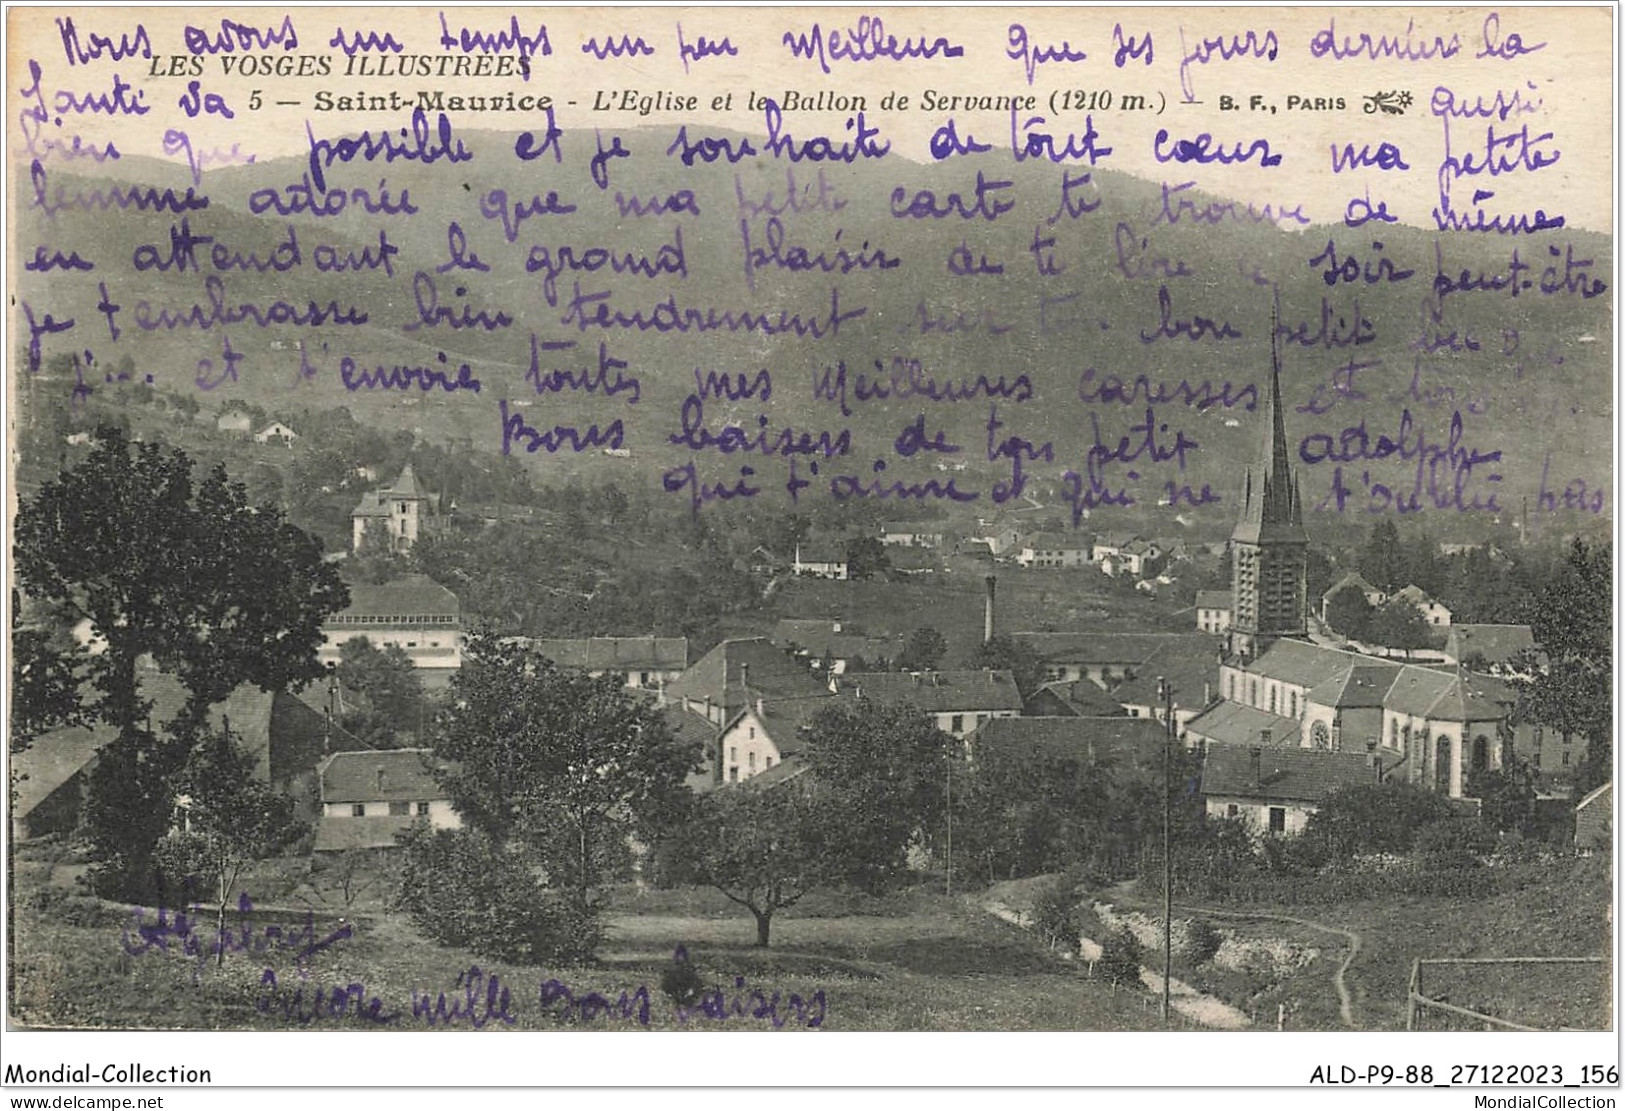 Nous avons un temps un peu meilleur que ses jours derniers la
LES VOSGES ILLUSTRÉES
Santé va aussi
5 — Saint-Maurice - L'Eglise et le Ballon de Servance (1210 m.) — B. F., PARIS
bien que possible et je souhaite de tout cœur ma petite
femme adorée que ma petite carte te trouve de même
en attendant le grand plaisir de te lire ce soir peut-être
je t'embrasse bien tendrement sur ton bon petit bec que
j'... et t'envoie toutes mes meilleures caresses et
Bons baisers de ton petit adolphe
qui t'aime et qui ne t'oublie pas
Encore mille Bons baisers
Mondial-Collection
ALD-P9-88_27122023_156
delcampe.net
MondialCollection